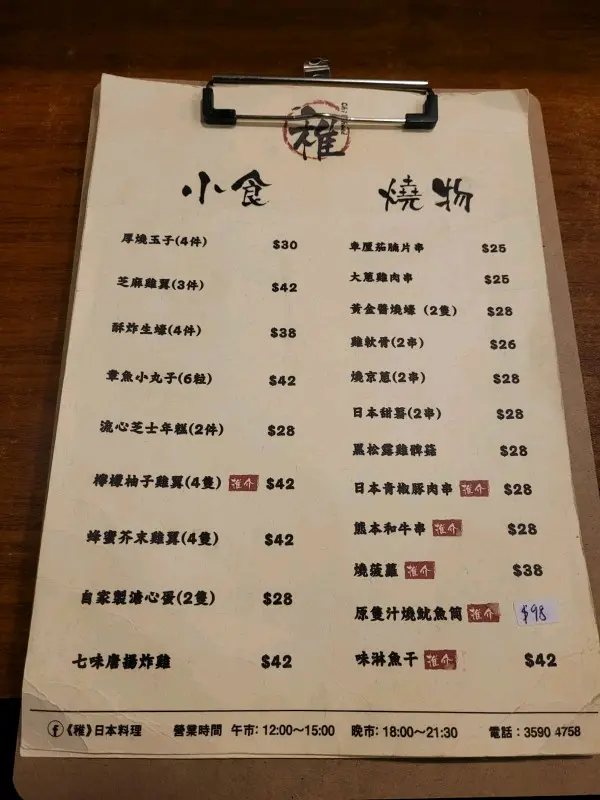 稚
小食
厚燒玉子(4件) $30
芝麻雞翼(3件) $42
酥炸生蠔(4件) $38
章魚小丸子(6粒) $42
流心芝士年糕(2件) $28
檸檬柚子雞翼(4隻) 推介 $42
蜂蜜芥末雞翼(4隻) $42
自家製溏心蛋(2隻) $28
七味唐揚炸雞 $42
燒物
車厘茄腩片串 $25
大蔥雞肉串 $25
黃金醬燒蠔 (2隻) $28
雞軟骨(2串) $26
燒京蔥(2串) $28
日本甜薯(2串) $28
黑松露雞髀菇 $28
日本青椒豚肉串 推介 $28
熊本和牛串 推介 $28
燒菠蘿 推介 $38
原隻汁燒魷魚筒 推介 $98
味淋魚干 推介 $42
f《稚》日本料理 營業時間 午市: 12:00～15:00 晚市: 18:00～21:30 電話：3590 4758